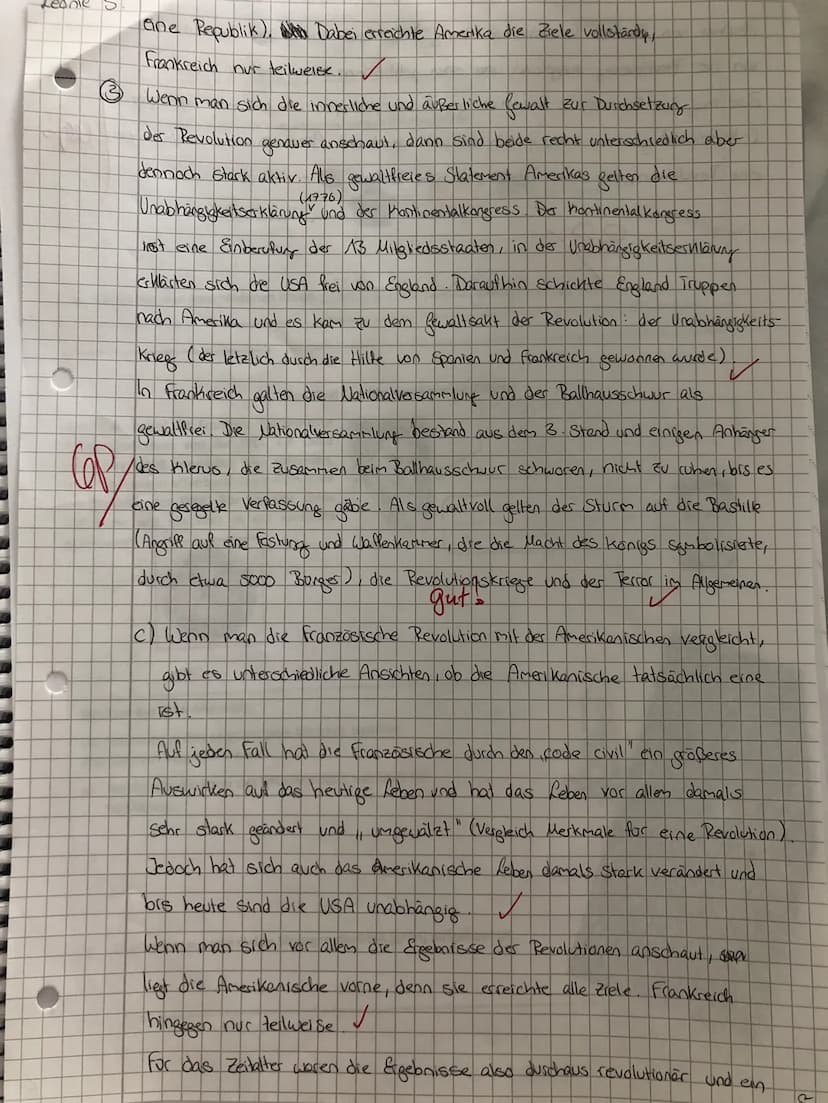 Leonie S.
eine Republik). Dabei erreichte Amerika die Ziele vollständig,
Frankreich nur teilweise.
③ Wenn man sich die innerliche und äußerliche Gewalt zur Durchsetzung
der Revolution genauer anschaut, dann sind beide recht unterschiedlich aber
dennoch stark aktiv. Als gewaltfreies Statement Amerikas gelten die
(1776)
Unabhängigkeitserklärung und der Kontinentalkongress. Der Kontinentalkongress
ist eine Einberufung der 13 Mitgliedsstaaten, in der Unabhängigkeitserklärung
erklärten sich die USA frei von England. Daraufhin schickte England Truppen
nach Amerika und es kam zu dem Gewaltsakt der Revolution: der Unabhängigkeits-
krieg (der letzlich durch die Hilfe von Spanien und Frankreich gewonnen wurde).
In Frankreich galten die Nationalversammlung und der Ballhausschwur als
gewaltfrei. Die Nationalversammlung bestand aus dem 3. Stand und einigen Anhänger
6P/ des Klerus, die zusammen beim Ballhausschwur schworen, nicht zu ruhen, bis es
eine geregelte Verfassung gäbe. Als gewaltvoll gelten der Sturm auf die Bastille
(Angriff auf eine Festung und Waffenkammer, die die Macht des Königs symbolisierte,
durch etwa 5000 Bürger), die Revolutionskriege und der Terror im Allgemeinen.
gut!
c) Wenn man die Französische Revolution mit der Amerikanischen vergleicht,
gibt es unterschiedliche Ansichten, ob die Amerikanische tatsächlich eine
ist.
Auf jeden Fall hat die Französische durch den „code civil" ein größeres
Auswirken auf das heutige Leben und hat das Leben vor allem damals
sehr stark geändert und „umgewälzt" (Vergleich Merkmale für eine Revolution).
Jedoch hat sich auch das Amerikanische Leben damals stark verändert und
bis heute sind die USA unabhängig.
Wenn man sich vor allem die Ergebnisse der Revolutionen anschaut,
liegt die Amerikanische vorne, denn sie erreichte alle Ziele. Frankreich
hingegen nur teilweise.
Für das Zeitalter waren die Ergebnisse also durchaus revolutionär und ein